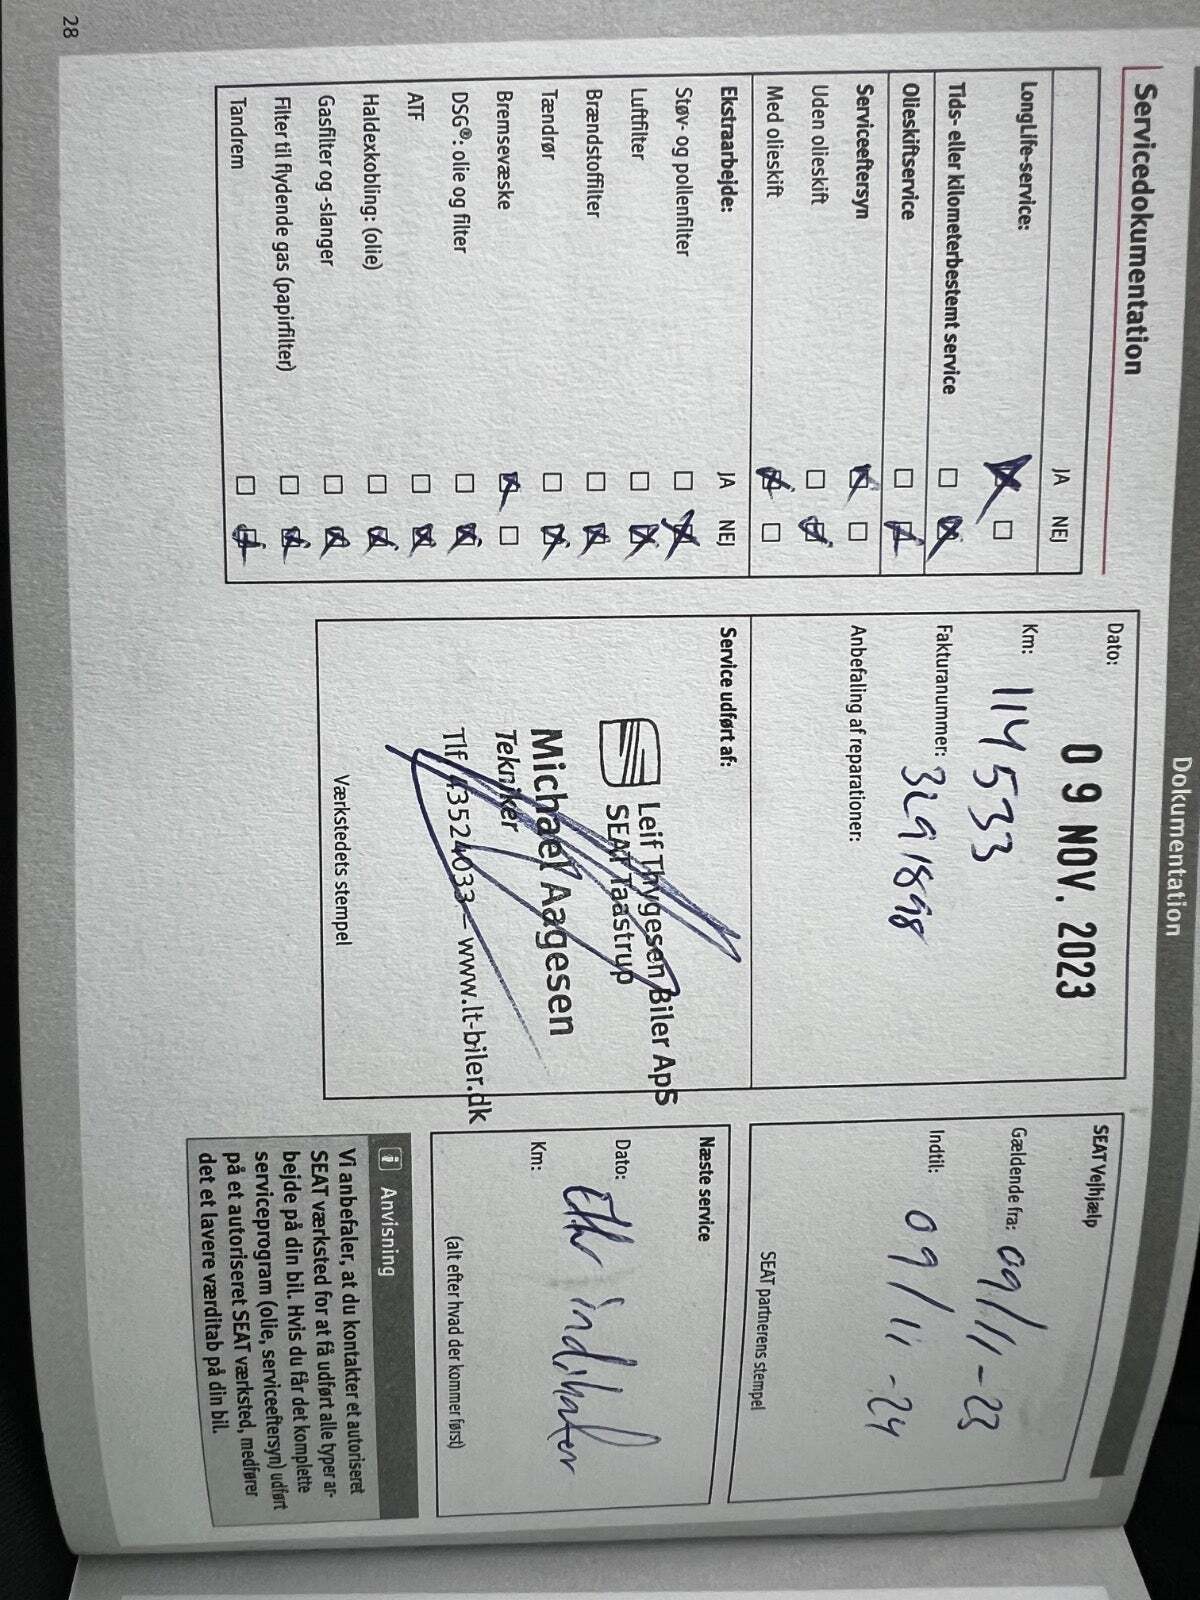 Dokumentation
Servicedokumentation
JA NEJ
LongLife-service:
Tids- eller kilometerbestemt service
Olieskiftservice
Serviceeftersyn
Uden olieskift
Med olieskift
Ekstraarbejde: JA NEJ
Støv- og pollenfilter
Luftfilter
Brændstoffilter
Tændrør
Bremsevæske
DSG®: olie og filter
ATF
Haldexkobling: (olie)
Gasfilter og -slanger
Filter til flydende gas (papirfilter)
Tandrem
Dato: 09 NOV. 2023
Km: 114533
Fakturanummer: 3291898
Anbefaling af reparationer:
Service udført af:
Leif Thygesen Biler ApS
SEAT Taastrup
Michael Aagesen
Tekniker
Tlf 43524033 – www.lt-biler.dk
Værkstedets stempel
SEAT Vejhjælp
Gældende fra: 09/11-23
Indtil: 09/11-24
SEAT partnerens stempel
Næste service
Dato: Efter indikator
Km:
(alt efter hvad der kommer først)
i Anvisning
Vi anbefaler, at du kontakter et autoriseret
SEAT værksted for at få udført alle typer ar-
bejde på din bil. Hvis du får det komplette
serviceprogram (olie, serviceeftersyn) udført
på et autoriseret SEAT værksted, medfører
det et lavere værditab på din bil.
28